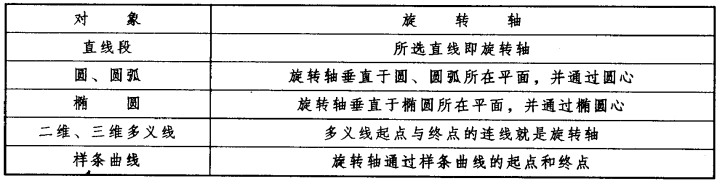 对 象 旋 转 轴
直线段 所选直线即旋转轴
圆、圆弧 旋转轴垂直于圆、圆弧所在平面，并通过圆心
椭 圆 旋转轴垂直于椭圆所在平面，并通过椭圆心
二维、三维多义线 多义线起点与终点的连线就是旋转轴
样条曲线 旋转轴通过样条曲线的起点和终点